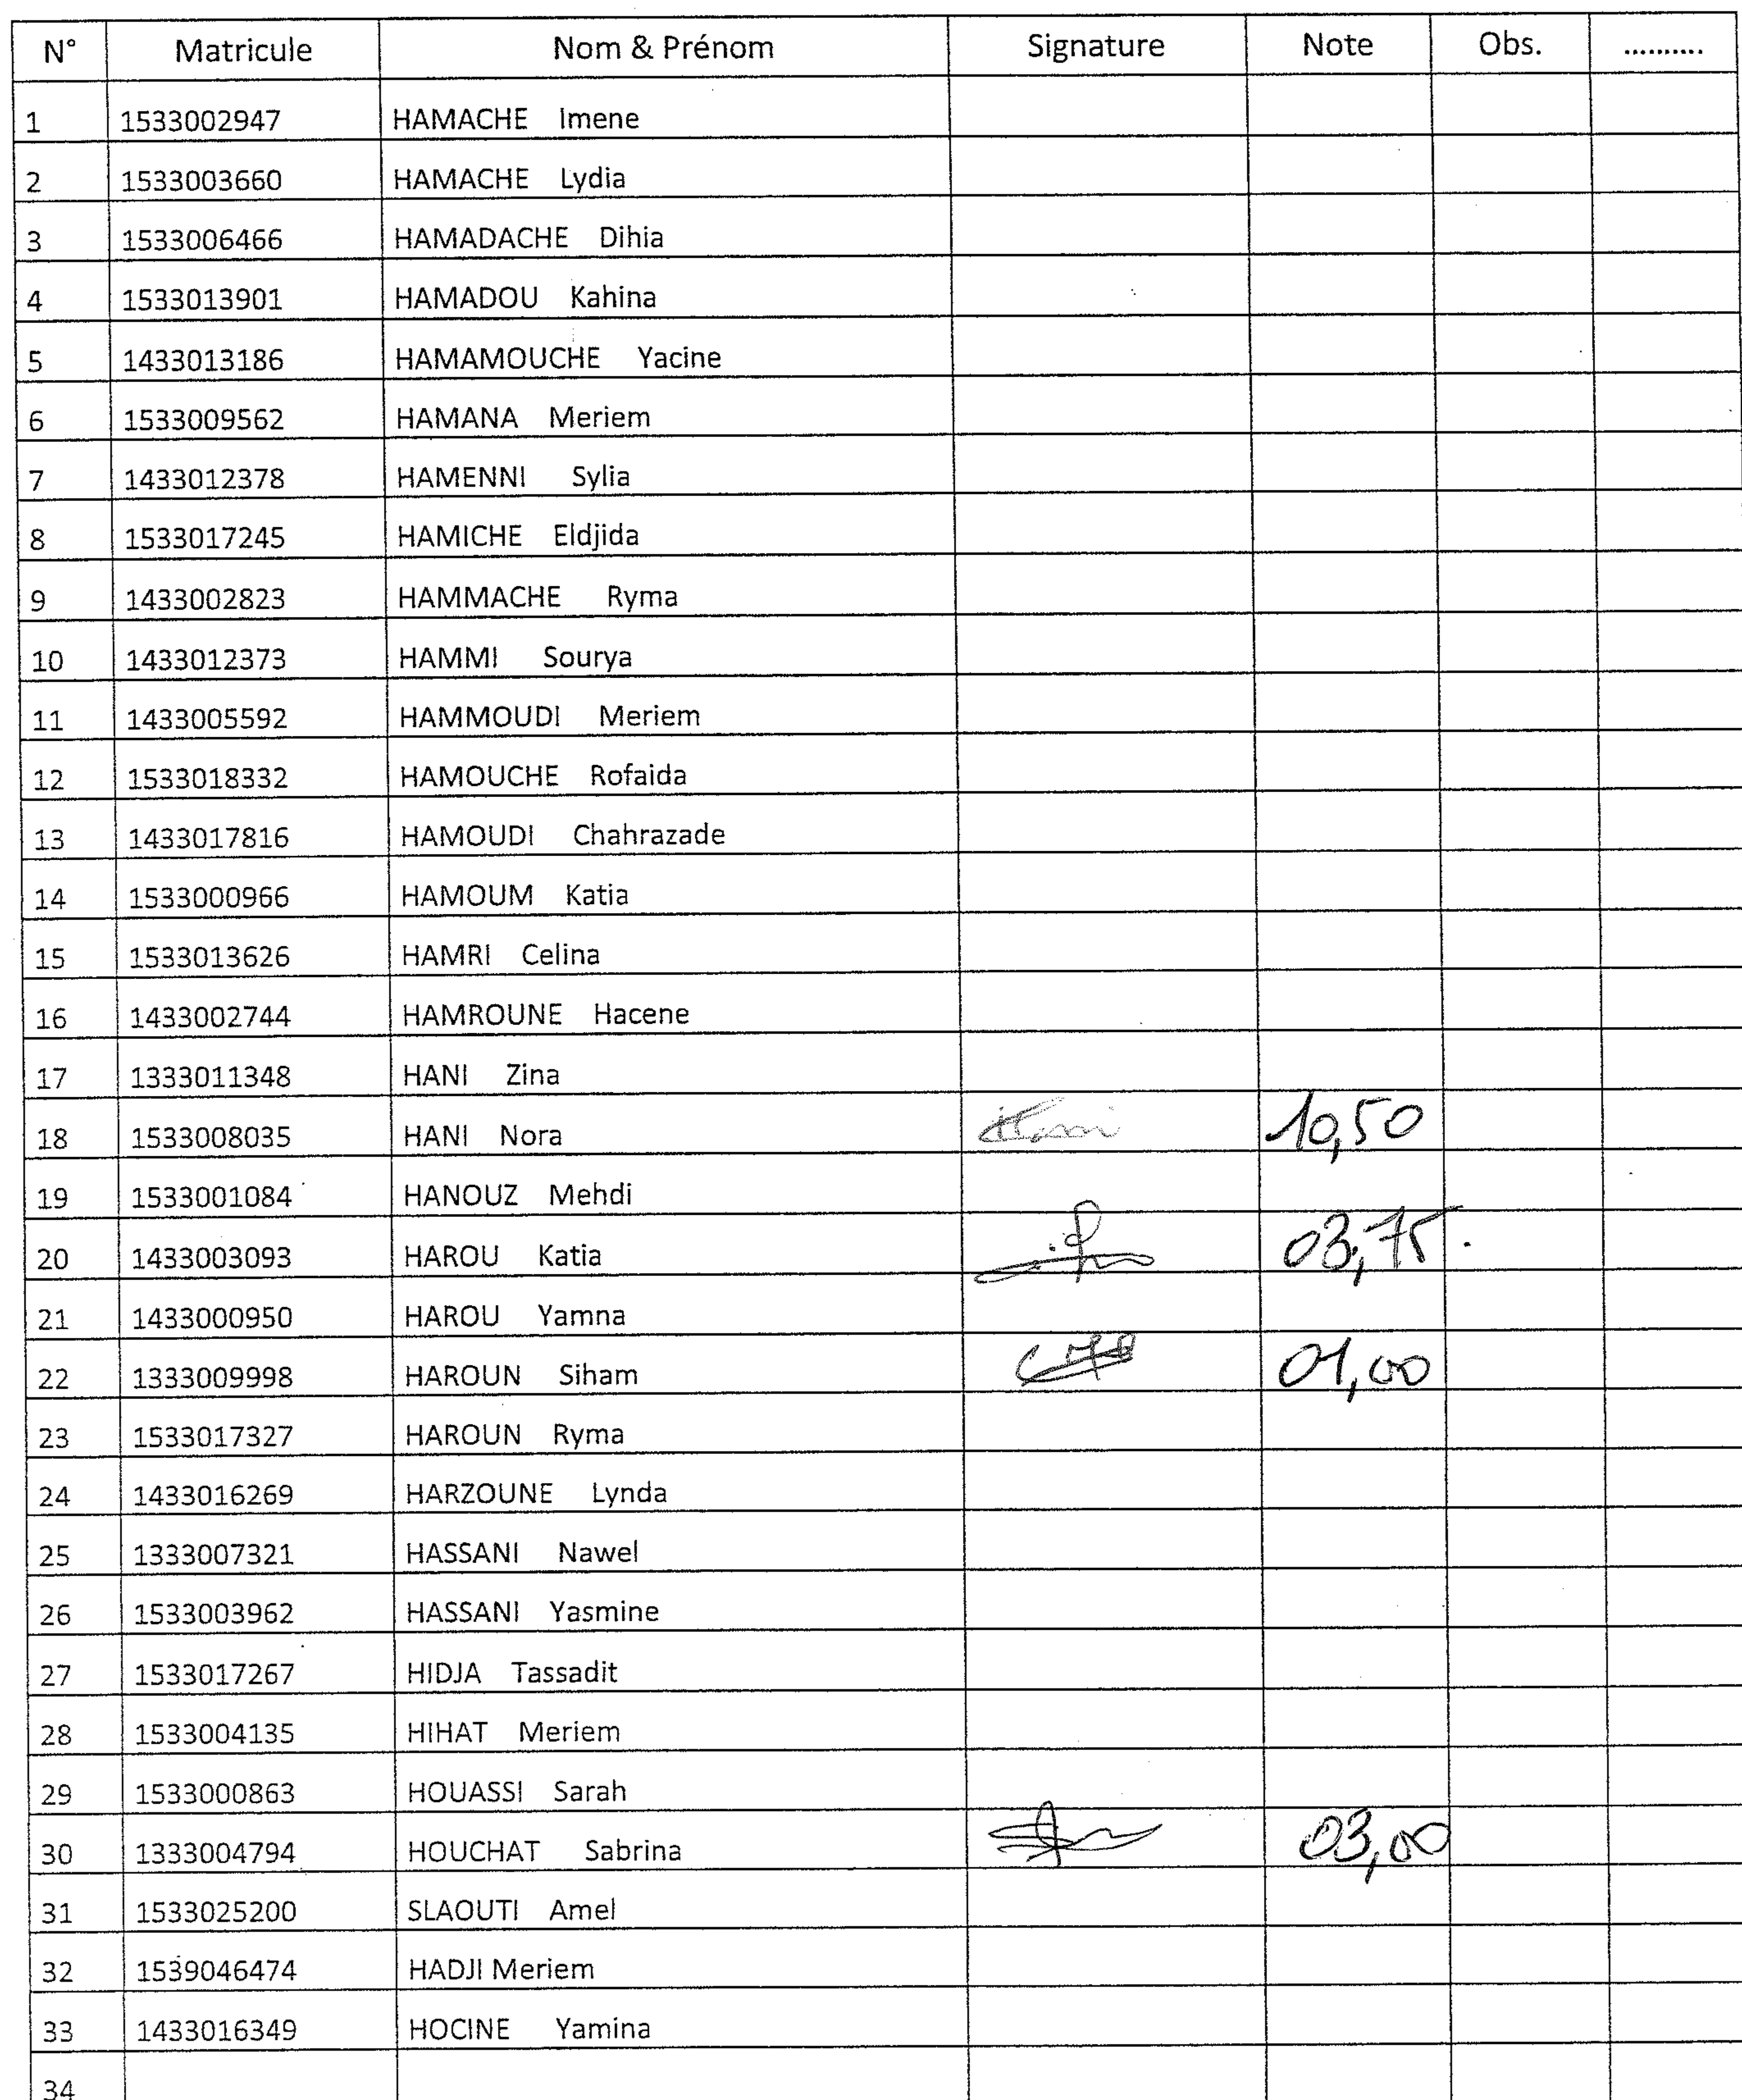 N° Matricule Nom & Prénom Signature Note Obs. ..........
1 1533002947 HAMACHE Imene
2 1533003660 HAMACHE Lydia
3 1533006466 HAMADACHE Dihia
4 1533013901 HAMADOU Kahina
5 1433013186 HAMAMOUCHE Yacine
6 1533009562 HAMANA Meriem
7 1433012378 HAMENNI Sylia
8 1533017245 HAMICHE Eldjida
9 1433002823 HAMMACHE Ryma
10 1433012373 HAMMI Sourya
11 1433005592 HAMMOUDI Meriem
12 1533018332 HAMOUCHE Rofaida
13 1433017816 HAMOUDI Chahrazade
14 1533000966 HAMOUM Katia
15 1533013626 HAMRI Celina
16 1433002744 HAMROUNE Hacene
17 1333011348 HANI Zina
18 1533008035 HANI Nora 10,50
19 1533001084 HANOUZ Mehdi
20 1433003093 HAROU Katia 03,75.
21 1433000950 HAROU Yamna
22 1333009998 HAROUN Siham 01,00
23 1533017327 HAROUN Ryma
24 1433016269 HARZOUNE Lynda
25 1333007321 HASSANI Nawel
26 1533003962 HASSANI Yasmine
27 1533017267 HIDJA Tassadit
28 1533004135 HIHAT Meriem
29 1533000863 HOUASSI Sarah
30 1333004794 HOUCHAT Sabrina 03,00
31 1533025200 SLAOUTI Amel
32 1539046474 HADJI Meriem
33 1433016349 HOCINE Yamina
34